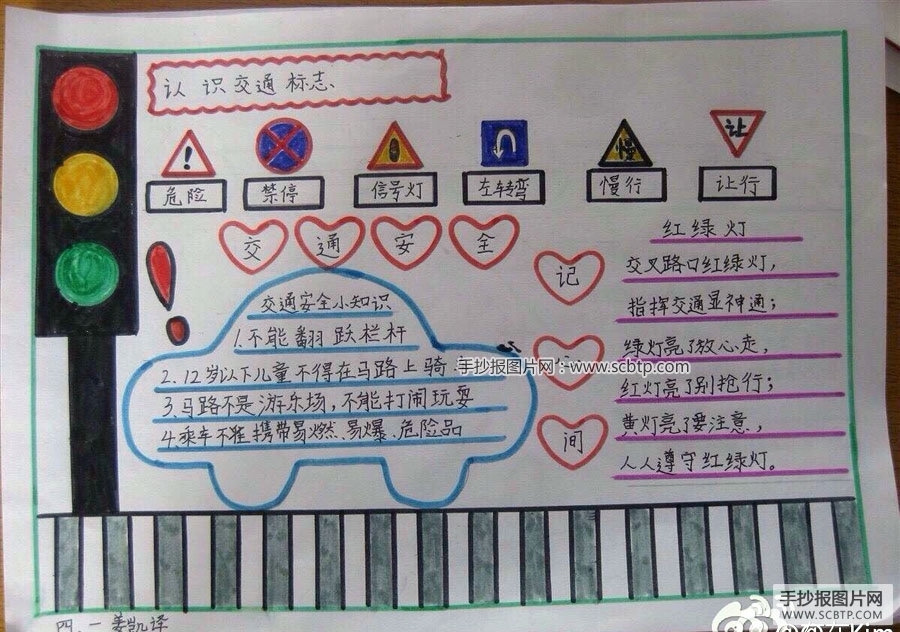 认识交通标志
!
危险
禁停
信号灯
左转弯
慢
慢行
让
让行
交通安全
记
心
间
交通安全小知识
1.不能翻跃栏杆
2.12岁以下儿童不得在马路上骑
3.马路不是游乐场,不能打闹玩耍
4.乘车不准携带易燃、易爆、危险品
红绿灯
交叉路口红绿灯,
指挥交通显神通;
绿灯亮了放心走,
红灯亮了别抢行;
黄灯亮了要注意,
人人遵守红绿灯。
手抄报图片网:www.scbtp.com
四.一 姜凯译
手抄报图片网
WWW.SCBTP.COM